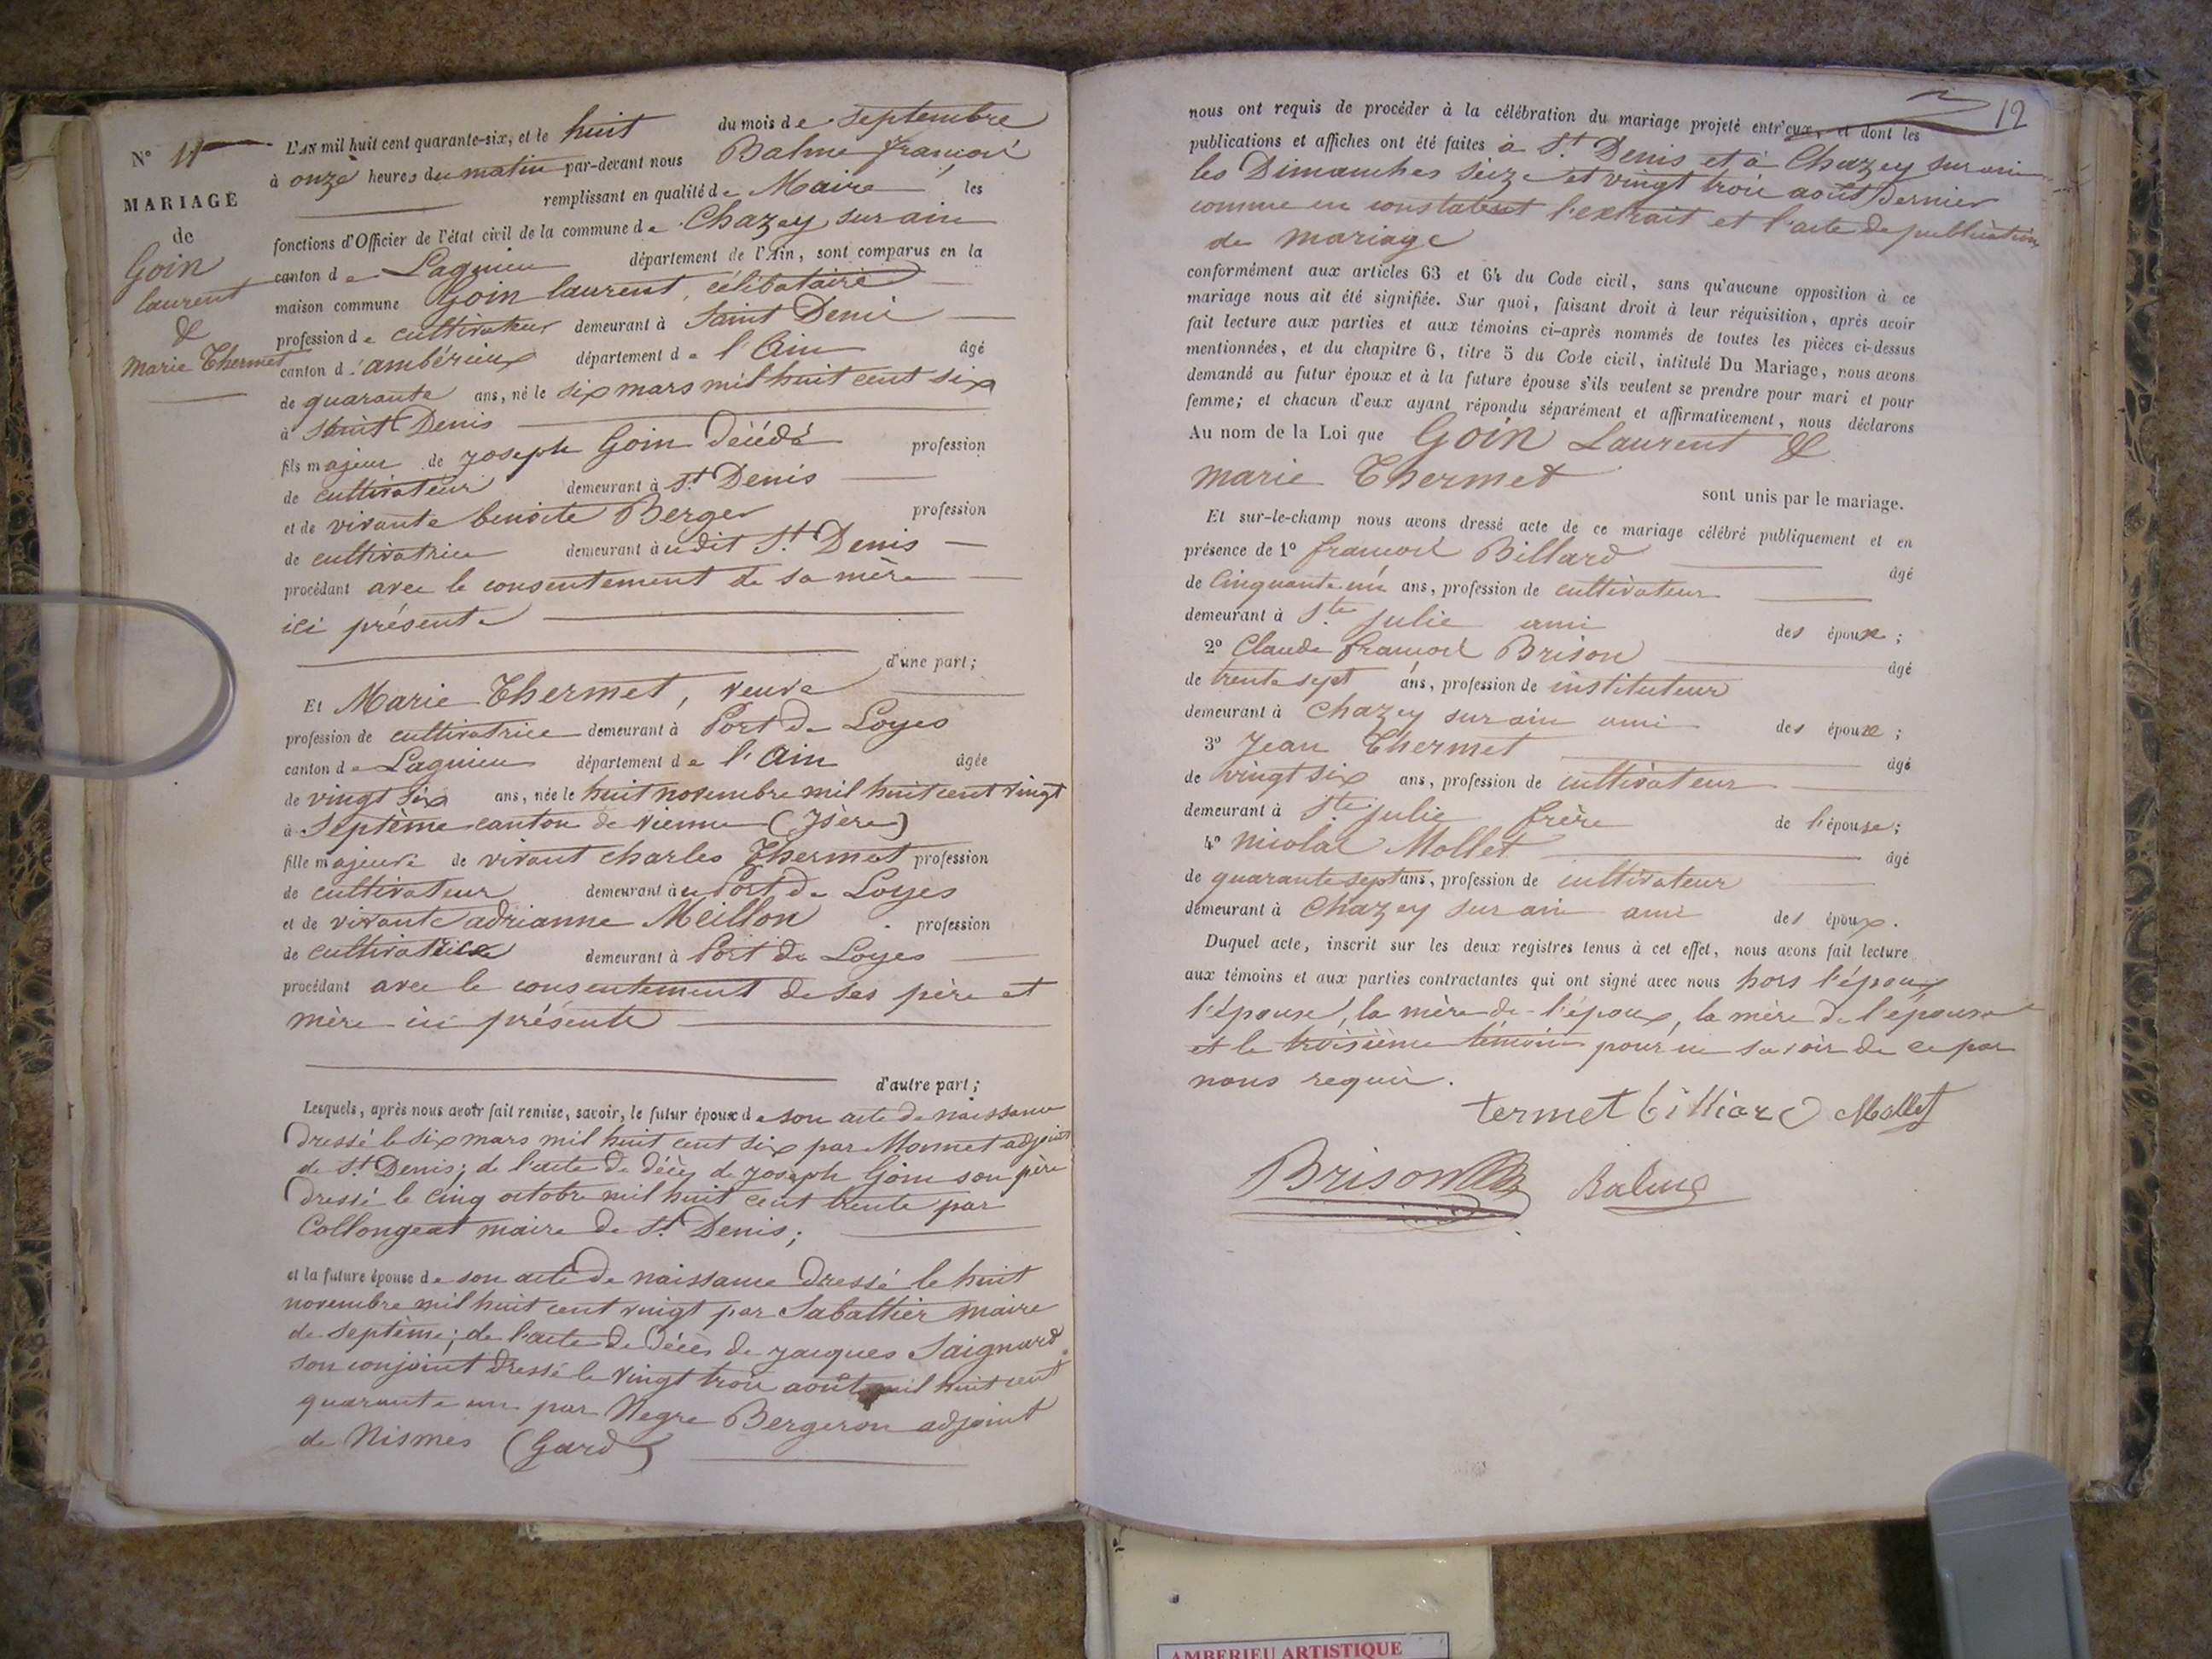 N° 11
MARIAGE
de
Goin
laurent
&
Marie Thermet
L'AN mil huit cent quarante-six, et le huit du mois de septembre
à onze heures du matin par-devant nous Balme françois
remplissant en qualité de Maire les
fonctions d'Officier de l'état civil de la commune de Chazey sur ain
canton de Lagnieu département de l'Ain, sont comparus en la
maison commune Goin laurent, célibataire
profession de cultivateur demeurant à Saint Denis
canton d'ambérieux département de l'Ain âgé
de quarante ans, né le six mars mil huit cent six
à Saint Denis
fils majeur de Joseph Goin décédé profession
de cultivateur demeurant à St Denis
et de vivante benoite Berger profession
de cultivatrice demeurant audit St Denis
procédant avec le consentement de sa mère
ici présente
d'une part;
Et Marie Thermet, veuve
profession de cultivatrice demeurant à Port de Loyes
canton de Lagnieu département de l'Ain âgée
de vingt six ans, née le huit novembre mil huit cent vingt
à Septème canton de vienne (Isère)
fille majeure de vivant charles Thermet profession
de cultivateur demeurant au Port de Loyes
et de vivante adrianne Meillon profession
de cultivatrice demeurant à Port de Loyes
procédant avec le consentement de ses père et
mère ici présents
d'autre part;
Lesquels, après nous avoir fait remise, savoir, le futur époux de son acte de naissance
dressé le six mars mil huit cent six par Monnet adjoint
de St Denis; de l'acte de décès de Joseph Goin son père
dressé le cinq octobre mil huit cent trente par
Collongeat maire de St Denis;
et la future épouse de son acte de naissance dressé le huit
novembre mil huit cent vingt par Sabattier maire
de septème; de l'acte de décès de jacques Saignard
son conjoint dressé le vingt trois août mil huit cent
quarante un par Negre Bergeron adjoint
de Nismes (Gard)
12
nous ont requis de procéder à la célébration du mariage projeté entr'eux, et dont les
publications et affiches ont été faites à St Denis et à Chazey sur ain
les Dimanches seize et vingt trois août Dernier
comme en constatent l'extrait et l'acte de publication
de mariage
conformément aux articles 63 et 64 du Code civil, sans qu'aucune opposition à ce
mariage nous ait été signifiée. Sur quoi, faisant droit à leur réquisition, après avoir
fait lecture aux parties et aux témoins ci-après nommés de toutes les pièces ci-dessus
mentionnées, et du chapitre 6, titre 5 du Code civil, intitulé Du Mariage, nous avons
demandé au futur époux et à la future épouse s'ils veulent se prendre pour mari et pour
femme; et chacun d'eux ayant répondu séparément et affirmativement, nous déclarons
Au nom de la Loi que Goin Laurent &
Marie Thermet
sont unis par le mariage.
Et sur-le-champ nous avons dressé acte de ce mariage célébré publiquement et en
présence de 1° françois Billard âgé
de Cinquante un ans, profession de cultivateur
demeurant à Ste Julie ami des époux;
2° Claude françois Brison âgé
de trente sept ans, profession de instituteur
demeurant à Chazey sur ain ami des époux;
3° Jean Thermet âgé
de vingt six ans, profession de cultivateur
demeurant à Ste Julie frère de l'épouse;
4° Nicolas Mollet âgé
de quarante sept ans, profession de cultivateur
demeurant à Chazey sur ain ami des époux.
Duquel acte, inscrit sur les deux registres tenus à cet effet, nous avons fait lecture
aux témoins et aux parties contractantes qui ont signé avec nous hors l'époux
l'épouse, la mère de l'époux, la mère de l'épouse
et le troisième témoin pour ne savoir de ce par
nous requis.
termet billiard Mollet
Brison Balme
AMBERIEU ARTISTIQUE